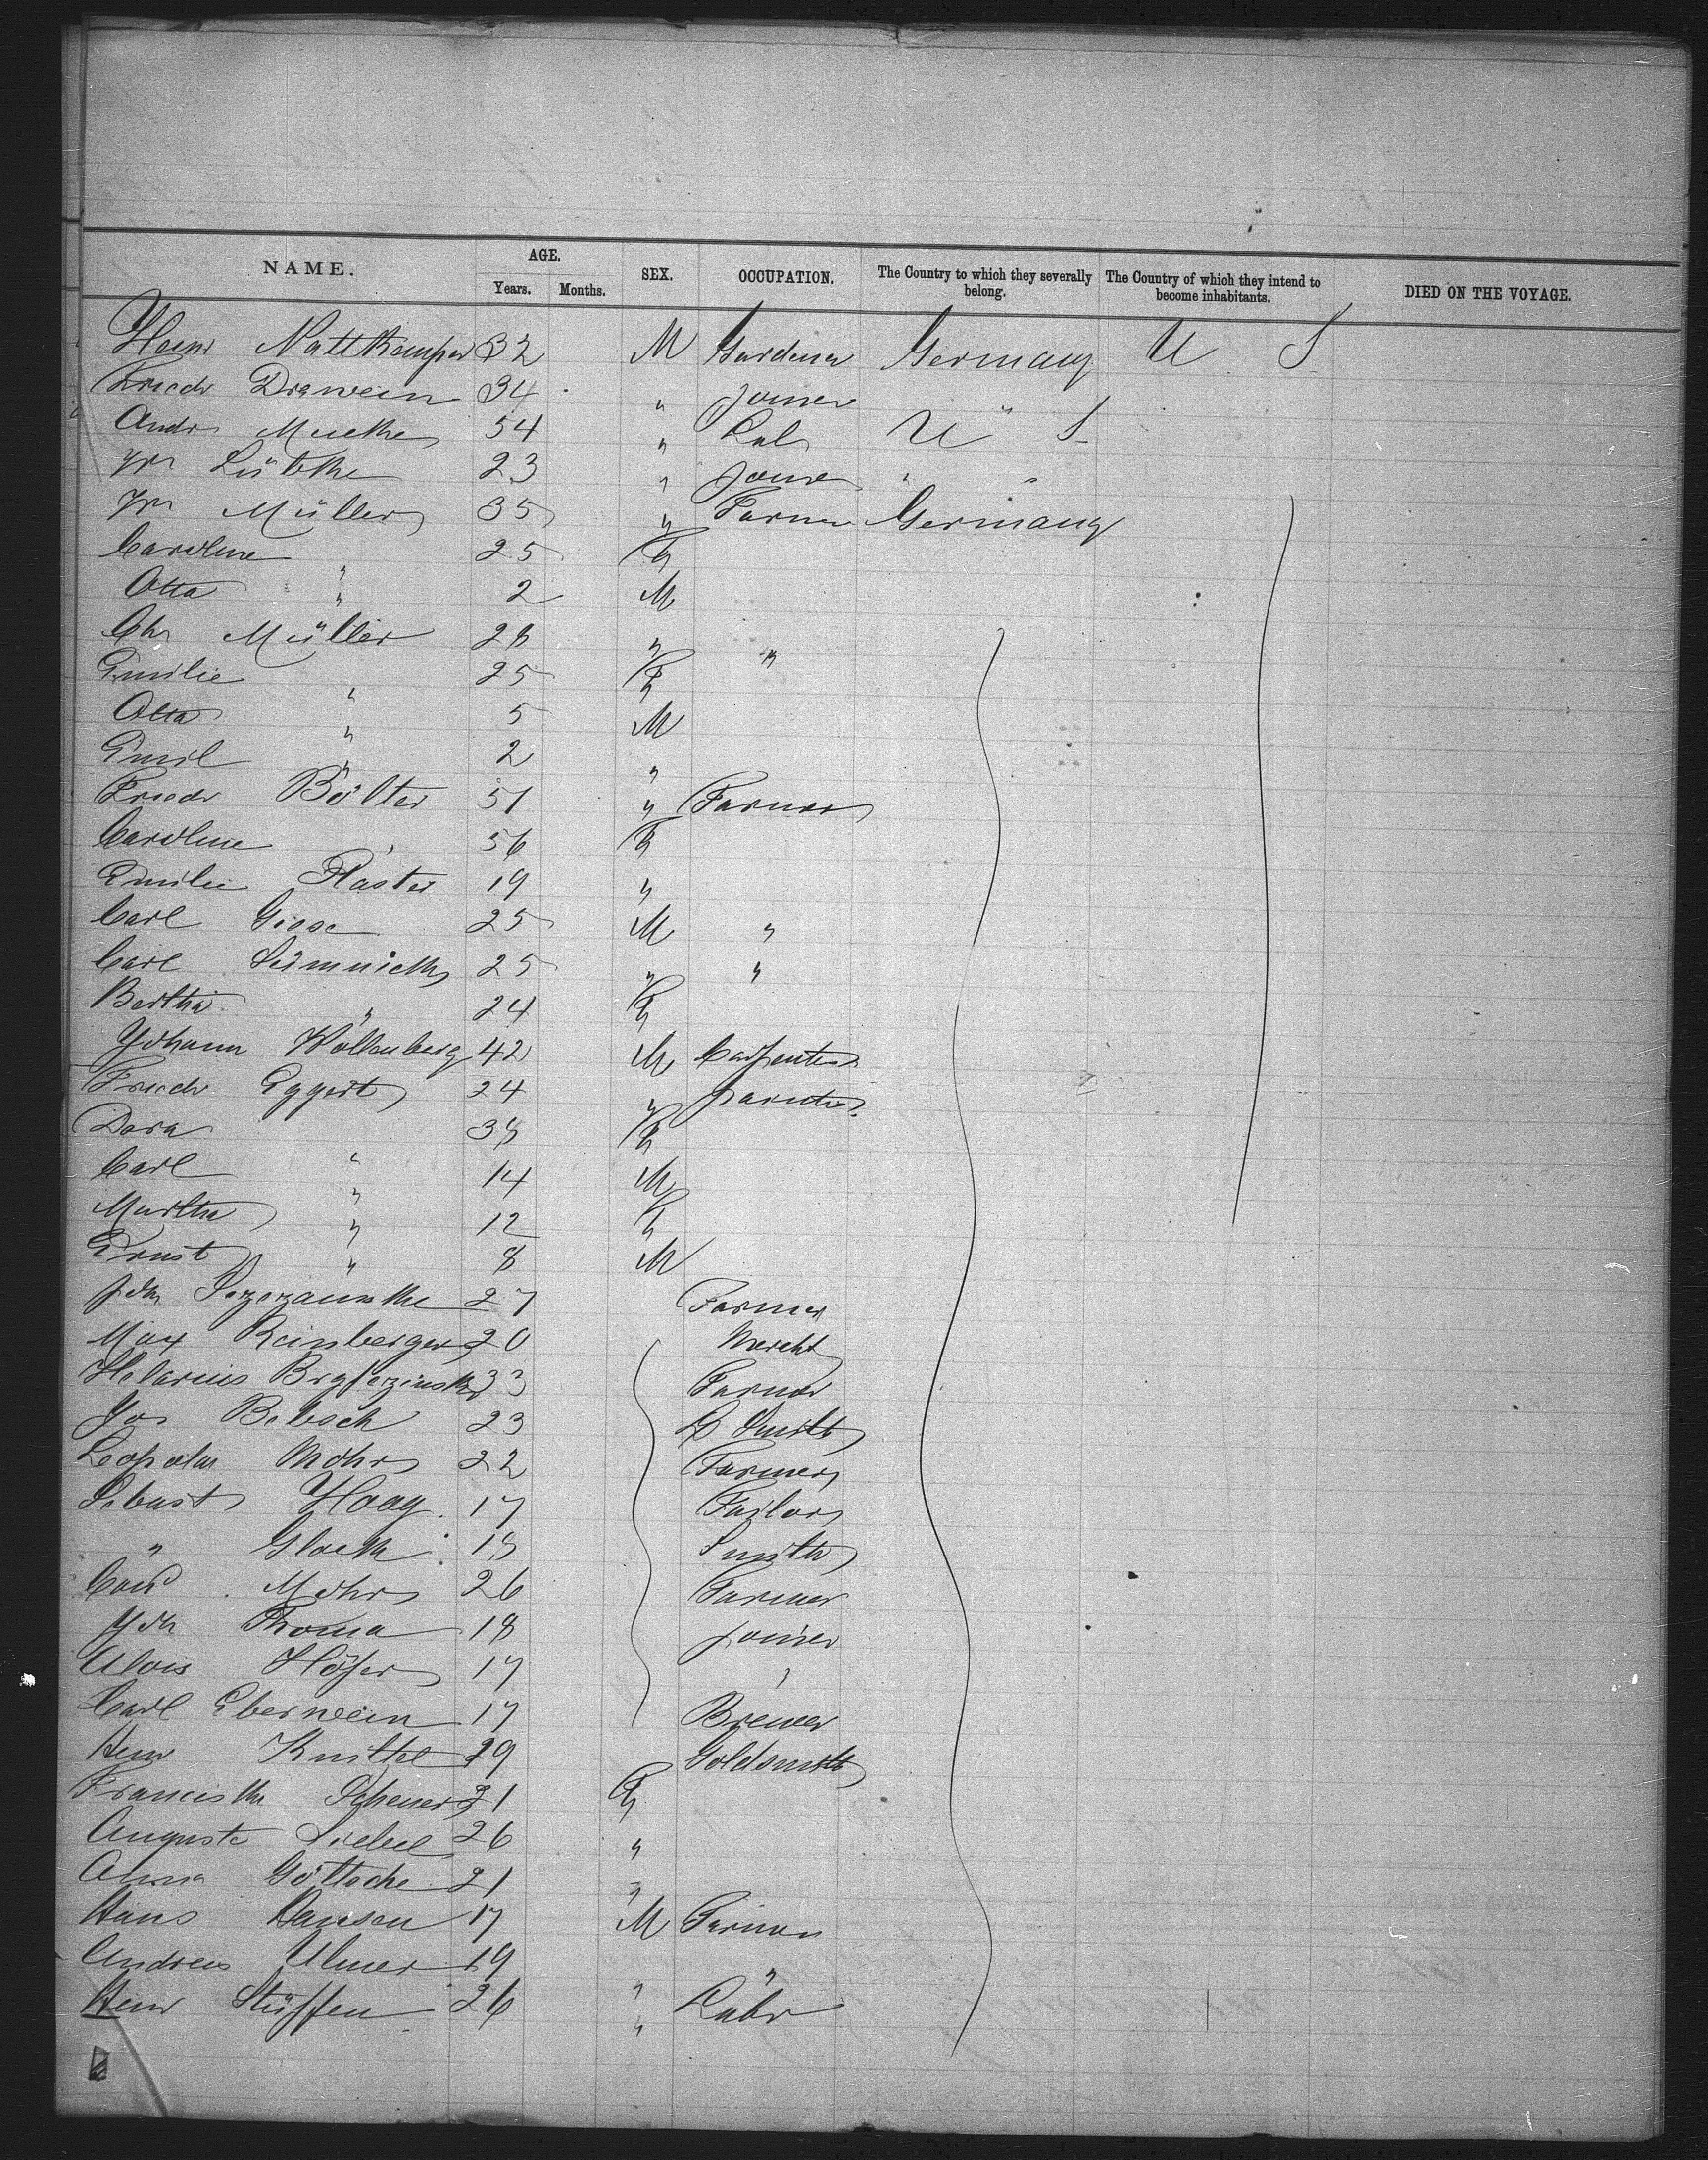 NAME. AGE. Years. Months. SEX. OCCUPATION. The Country to which they severally belong. The Country of which they intend to become inhabitants. DIED ON THE VOYAGE.
Heinr Nattkemper 32 M Gardener Germany U S
Friedr Drawein 34 " Joiner "
Andr Muethe 54 " Lab U S
Wm Lübthe 23 " Joiner " "
Wm Müller 35 " Farmer Germany
Caroline " 25 F
Otto " 2 M
Chr Müller 28 " "
Emilie " 25 F
Otto " 5 M
Emil " 2 "
Friedr Bölter 51 " Farmer
Caroline " 56 F
Emilie Plaster 19 "
Carl Giese 25 M "
Carl 25 " "
Bertha " 24 F
Johann Wollenberg 42 M Carpenter
Friedr Eggert 24 "
Dora 38 F
Carl " 14 M
Martha " 12 F
Ernst " 8 M
Joh 27 Farmer
Max Reinberger 20 Mercht
33 Farmer
Jos Bebsch 23 Smith
Leopold Mohr 22 Farmer
Sebast Haag 17 Tailor
" Glock 18 Smith
Mohr 26 Farmer
Joh Thoma 18 Joiner
Alois Höfer 17 "
Carl Eberwein 17 Brewer
Henr Knittel 29 Goldsmith
Franciska Scheuer 21 F
Auguste Liebel 26 "
Anna Göttsche 21 "
Hans Hansen 17 M Farmer
Andreas Ulmer 19 " "
Henr Stüffen 26 " Labr